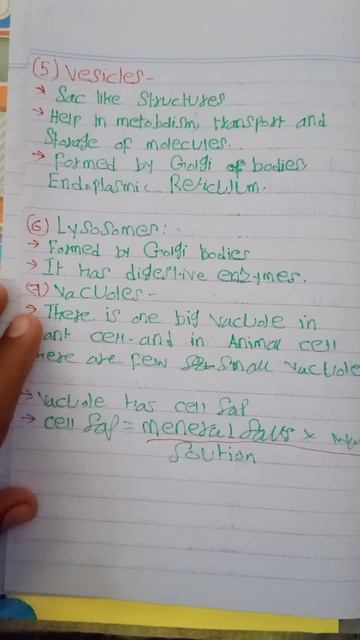 (5) Vesicles-
→ Sac like Structures
→ Help in metabolism, transport and
Storage of molecules.
→ Formed by Golgi of bodies,
Endoplasmic Reticulum.
(6) Lysosomes:
→ Formed by Golgi bodies
→ It has digestive enzymes.
(7) Vacuoles-
→ There is one big vacuole in
ant cell and in Animal cell
here are few small vacuole
→ Vacuole has cell Sap
→ cell Sap = meneral Salts ×
Solution